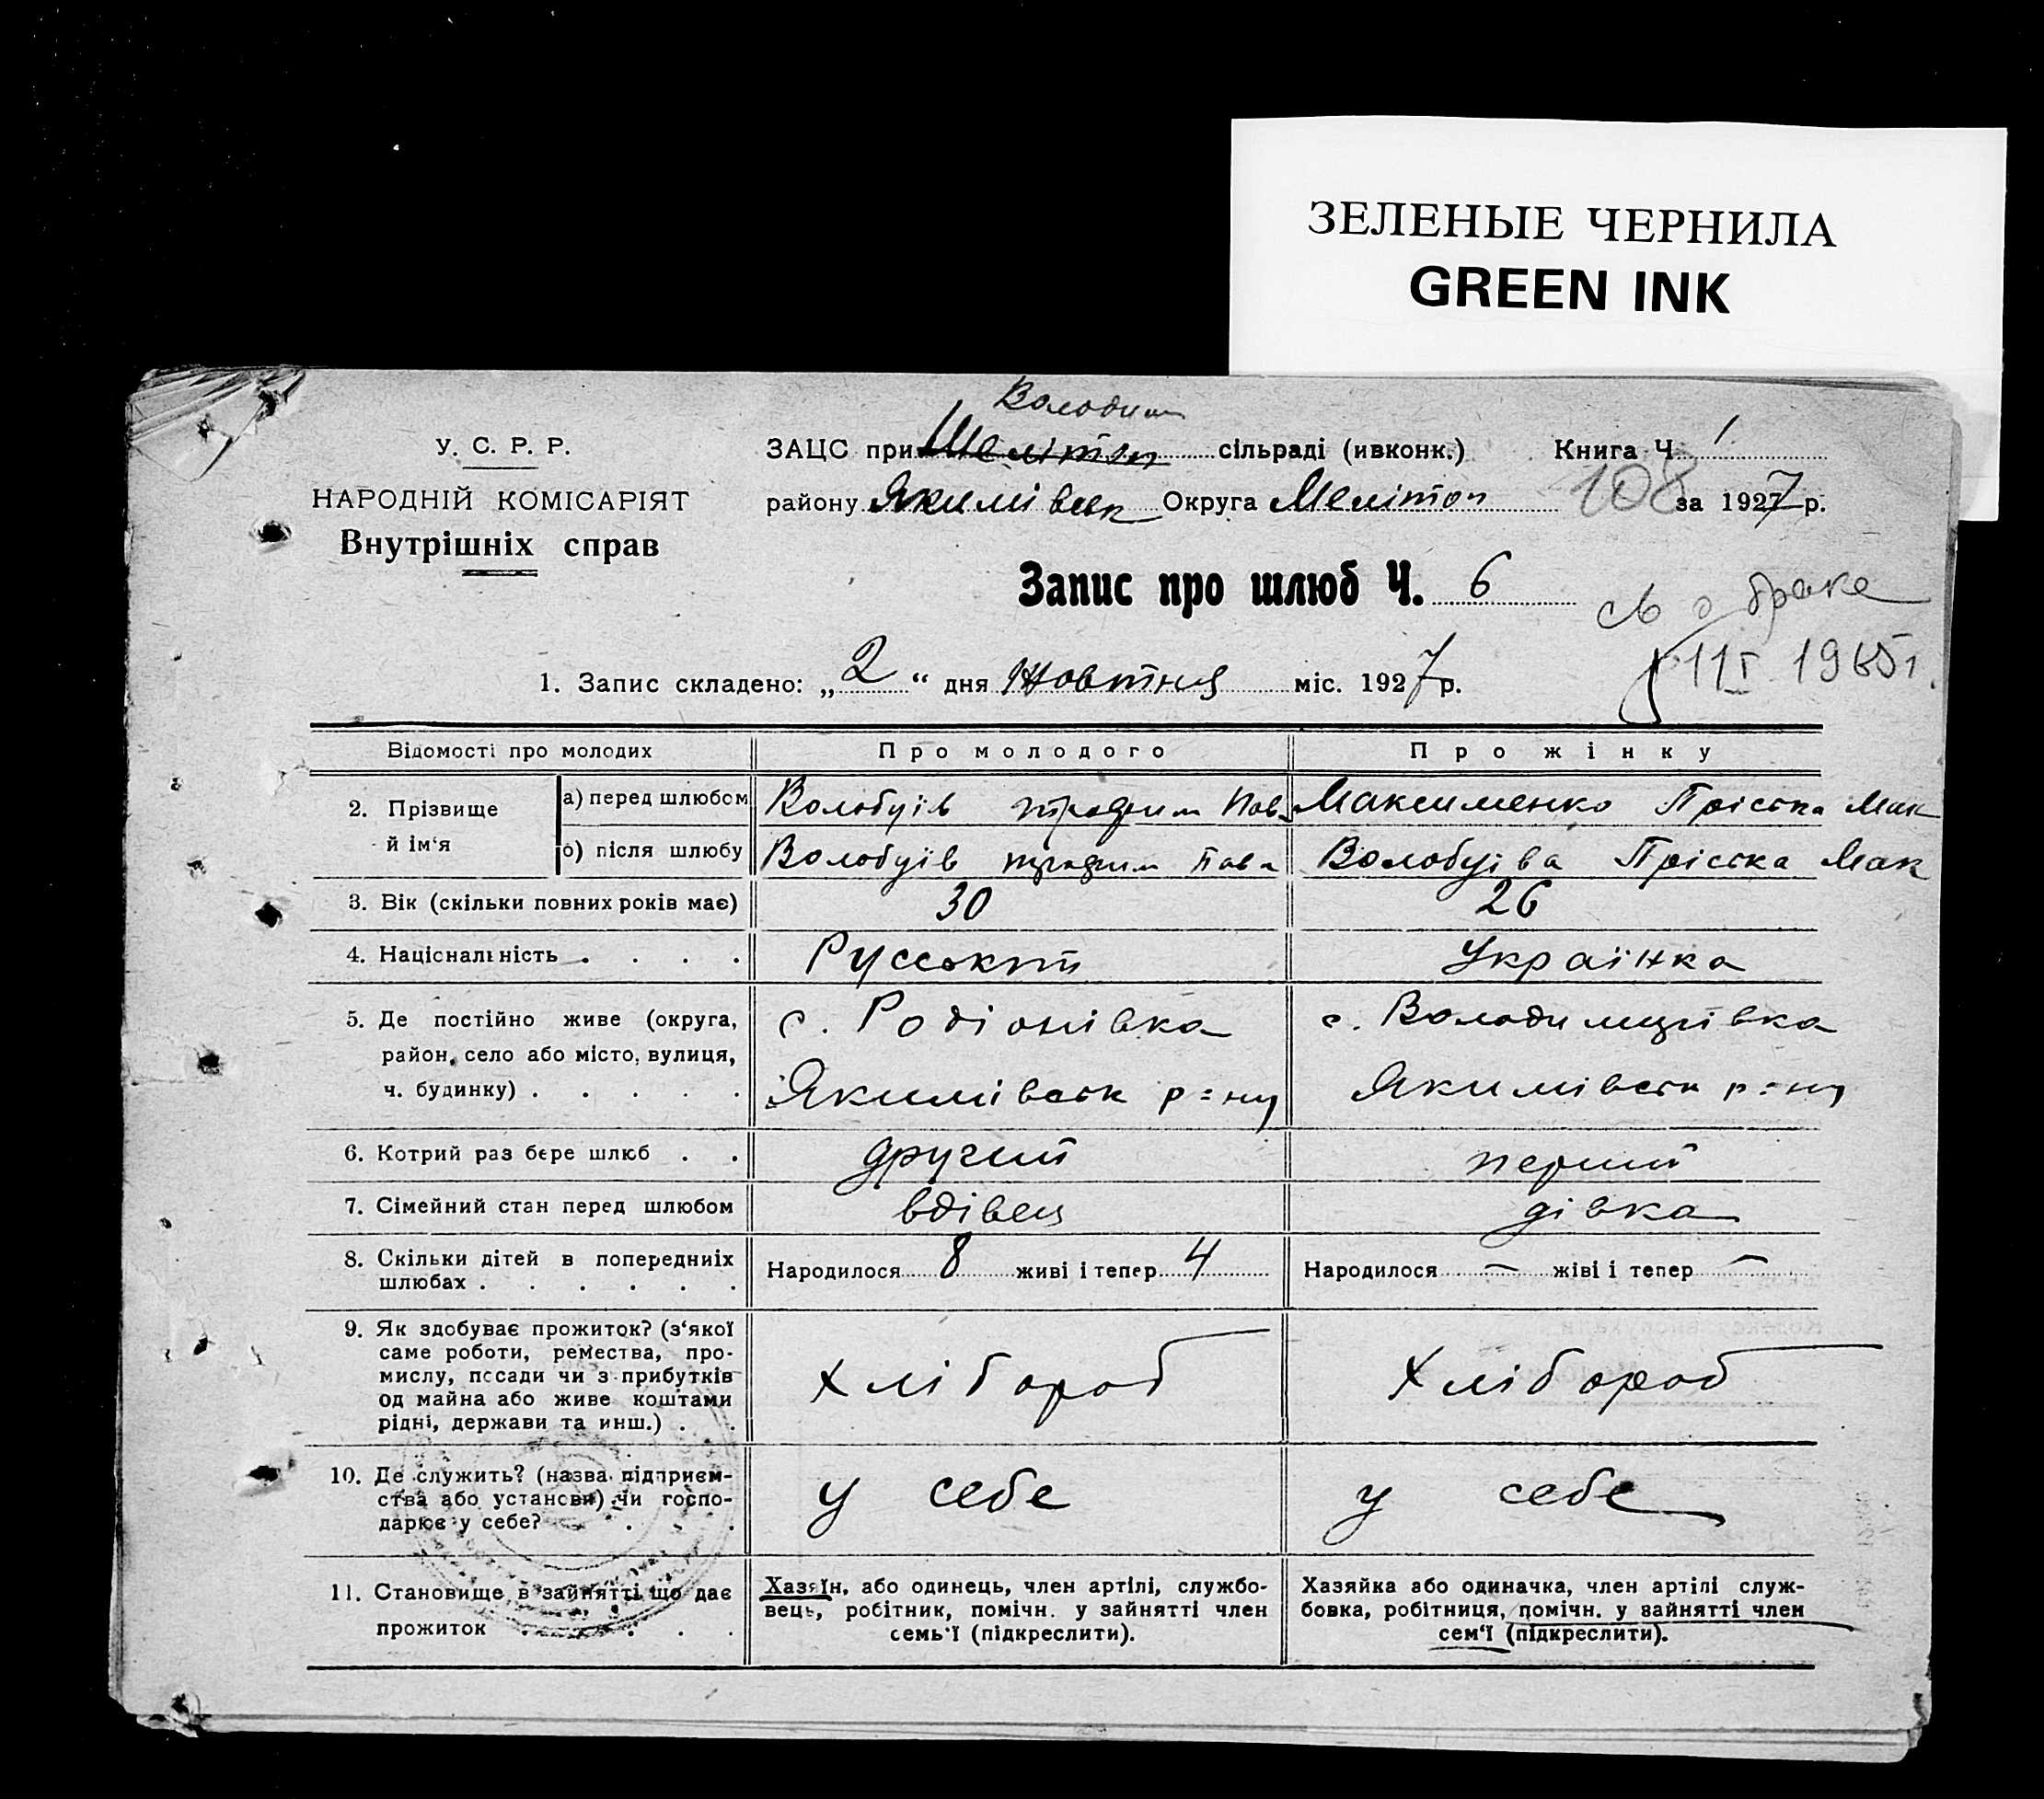 ЗЕЛЕНЫЕ ЧЕРНИЛА
GREEN INK
Володим
У. С. Р. Р.
НАРОДНІЙ КОМІСАРІЯТ
Внутрішніх справ
ЗАЦС при Меліտոп сільраді (ивконк.) Книга Ч. 1
району Якимівськ Округа Меліտոп 108 за 1927 р.
Запис про шлюб Ч. 6
св о браке
11 I 1965 г.
1. Запис складено: „2“ дня Жовтня міс. 1927 р.
Відомості про молодих Про молодого Про жінку
2. Прізвище й ім'я
а) перед шлюбом Волобуїв Трофим Пав Максименко Пріська Мак
б) після шлюбу Волобуїв Трофим Пав Волобуїва Пріська Мак
3. Вік (скільки повних років має) 30 26
4. Національність . . . . Русский Українка
5. Де постійно живе (округа, район, село або місто, вулиця, ч. будинку) . . . . .
с. Родіонівка
Якимівськ р=ну
с. Володимирівка
Якимівськ р=ну
6. Котрий раз бере шлюб . . другий перший
7. Сімейний стан перед шлюбом вдівец дівка
8. Скільки дітей в попередниіх шлюбах . . . . . .
Народилося 8 живі і тепер 4 Народилося — жіві і тепер —
9. Як здобуває прожиток? (з'якої
саме роботи, ремества, про-
мислу, посади чи з прибутків
од майна або живе коштами
рідні, держави та инш.) . .
Хлібороб Хлібороб
10. Де служить? (назва підприєм-
ства або установи) чи госпо-
дарює у себе? . . .
у себе у себе
11. Становище в зайнятті що дає
прожиток . . . .
Хазяїн, або одинець, член артілі, службо-
вець, робітник, помічн. у зайнятті член
семь'ї (підкреслити).
Хазяйка або одиначка, член артілі служ-
бовка, робітниця, помічн. у зайнятті член
сем'ї (підкреслити).